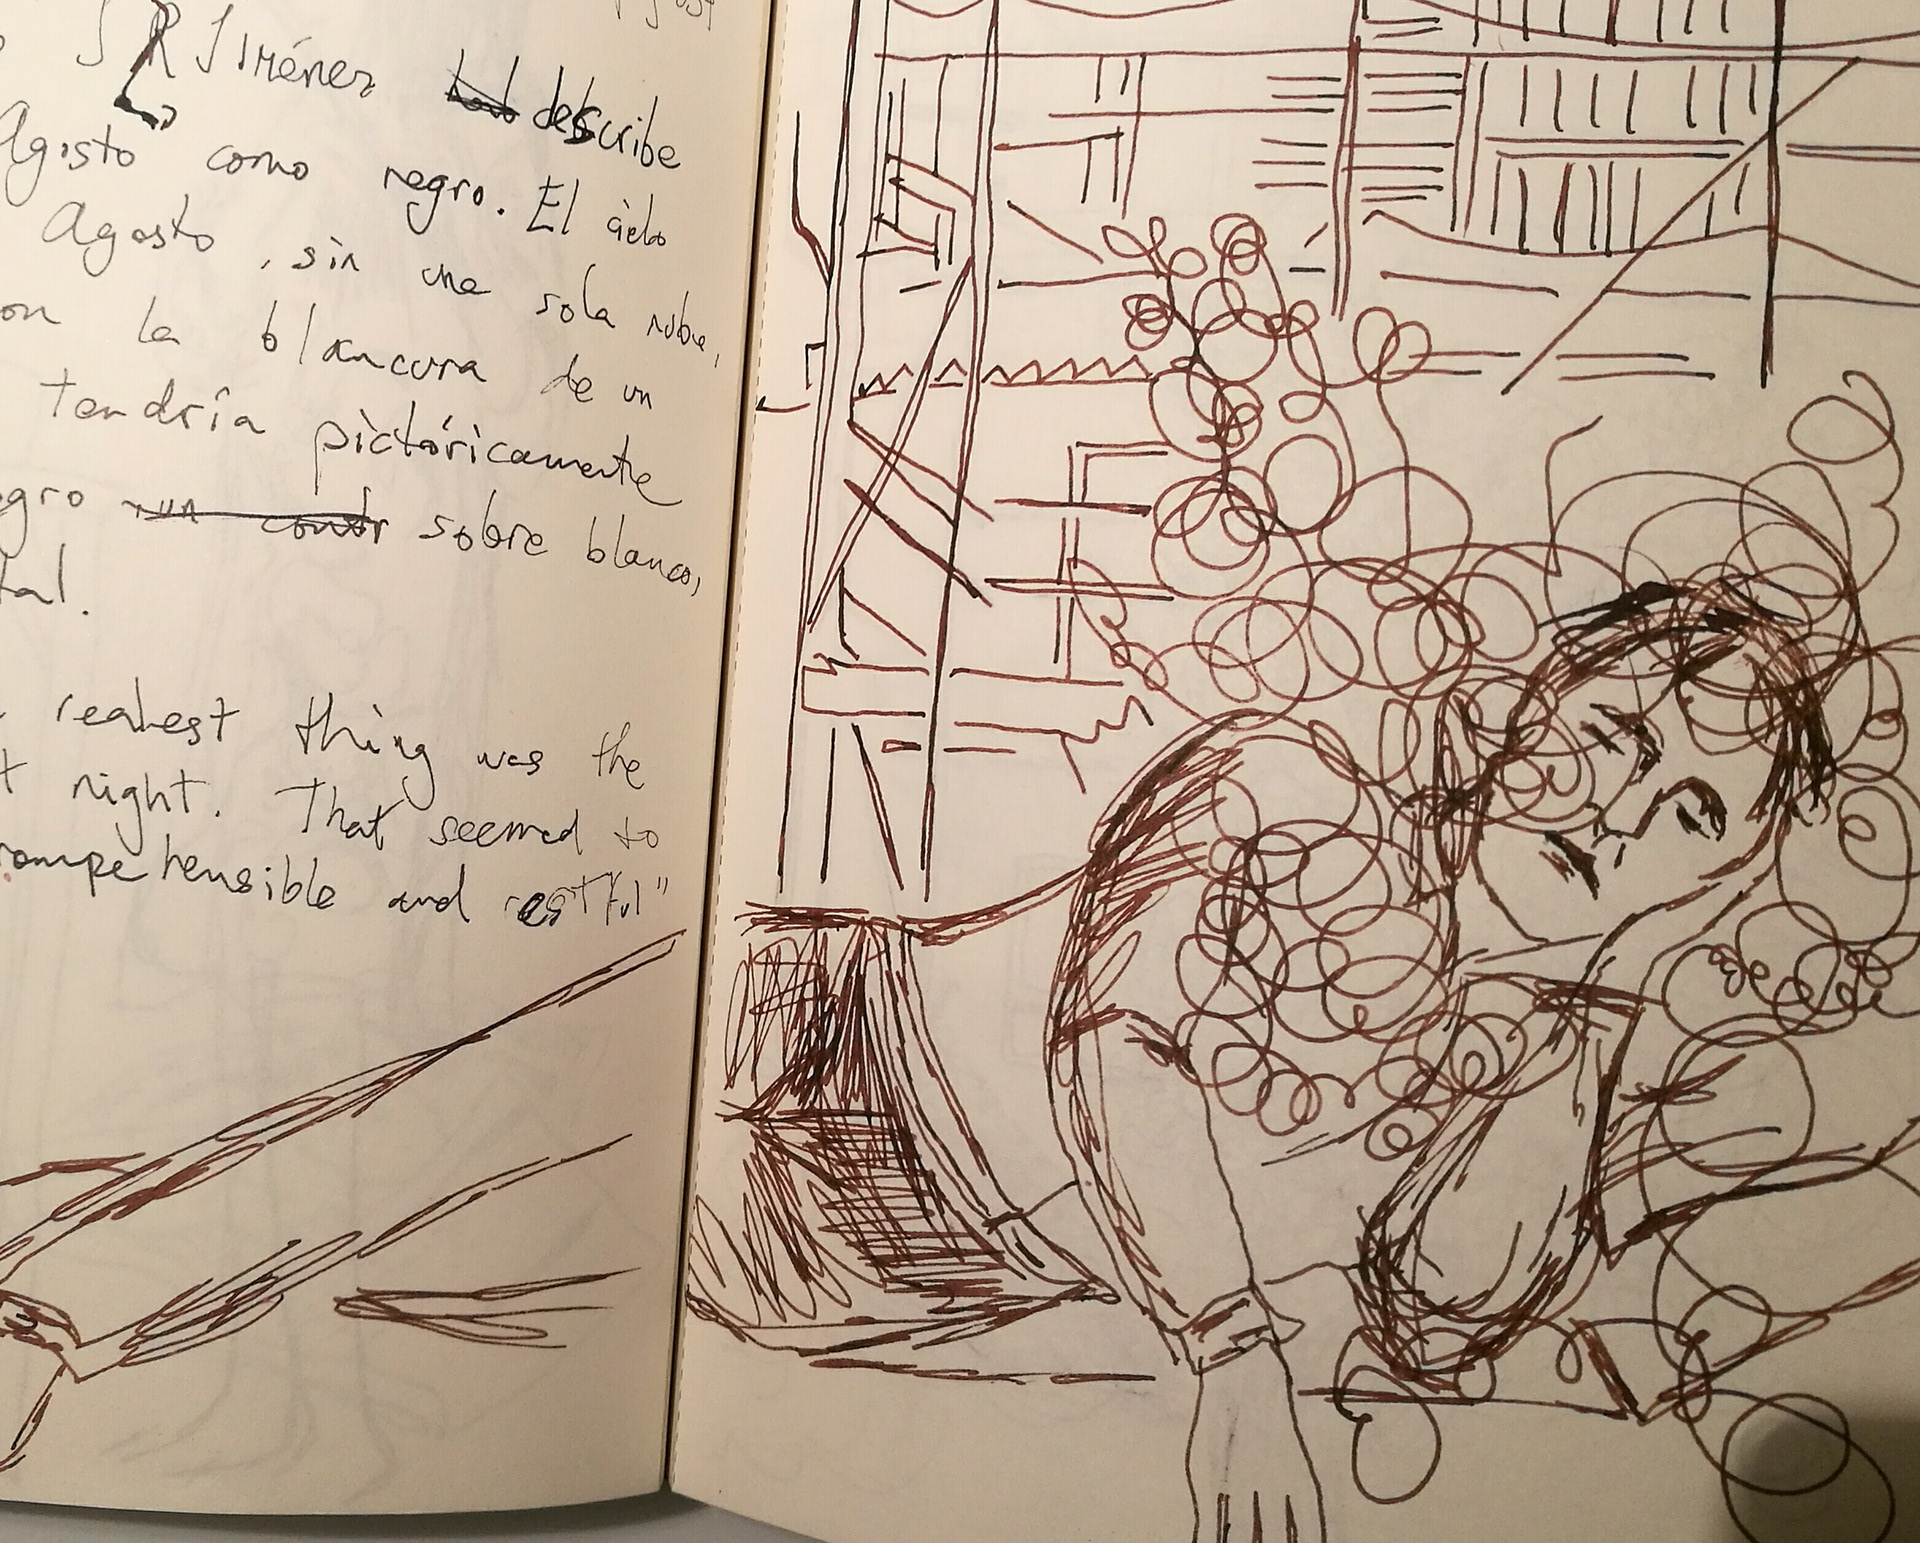 J R Jiménez describe
Agosto como negro. El cielo
Agosto, sin una sola nube,
on la blancura de un
tendría pictóricamente
egro sobre blanco,
tal.
realest thing was the
t night. That seemed to
compehensible and restful"